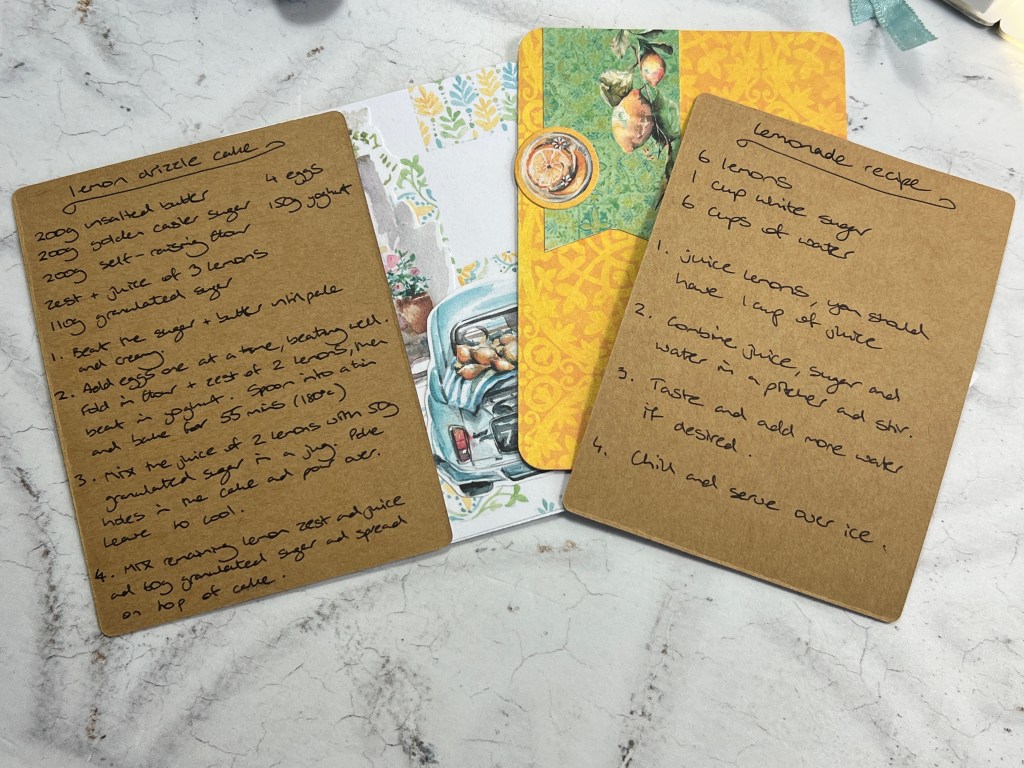 lemon drizzle cake
200g unsalted butter 4 eggs
200g golden caster sugar 150g yoghurt
200g self-raising flour
zest + juice of 3 lemons
110g granulated sugar
1. Beat the sugar + butter until pale
and creamy
2. Add eggs one at a time, beating well.
Fold in flour + zest of 2 lemons, then
beat in yoghurt. Spoon into a tin
and bake for 55 mins (180°c)
3. Mix the juice of 2 lemons with 50g
granulated sugar in a jug. Poke
holes in the cake and pour over.
Leave to cool.
4. Mix remaining lemon zest and juice
and 60g granulated sugar and spread
on top of cake.
Lemonade recipe
6 lemons
1 cup white sugar
6 cups of water
1. juice lemons, you should
have 1 cup of juice
2. Combine juice, sugar and
water in a pitcher and stir.
3. Taste and add more water
if desired.
4. Chill and serve over ice.